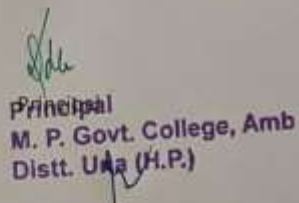 Principal
M. P. Govt. College, Amb
Distt. Una (H.P.)